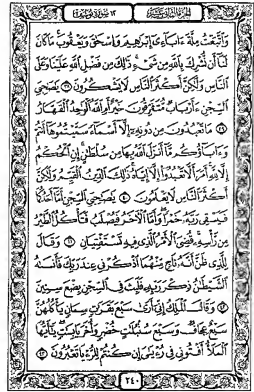 الجزء الثاني عشر
١٢ سورة يوسف
وَٱتَّبَعْتُ مِلَّةَ ءَابَآءِىٓ إِبْرَٰهِيمَ وَإِسْحَٰقَ وَيَعْقُوبَ مَا كَانَ
لَنَآ أَن نُّشْرِكَ بِٱللَّهِ مِن شَىْءٍ ذَٰلِكَ مِن فَضْلِ ٱللَّهِ عَلَيْنَا وَعَلَى
ٱلنَّاسِ وَلَٰكِنَّ أَكْثَرَ ٱلنَّاسِ لَا يَشْكُرُونَ ٣٨ يَٰصَىٰحِبَىِ
ٱلسِّجْنِ ءَأَرْبَابٌ مُّتَفَرِّقُونَ خَيْرٌ أَمِ ٱللَّهُ ٱلْوَٰحِدُ ٱلْقَهَّارُ
٣٩ مَا تَعْبُدُونَ مِن دُونِهِۦٓ إِلَّآ أَسْمَآءً سَمَّيْتُمُوهَآ أَنتُمْ
وَءَابَآؤُكُم مَّآ أَنزَلَ ٱللَّهُ بِهَا مِن سُلْطَٰنٍ إِنِ ٱلْحُكْمُ
إِلَّا لِلَّهِ أَمَرَ أَلَّا تَعْبُدُوٓا۟ إِلَّآ إِيَّاهُ ذَٰلِكَ ٱلدِّينُ ٱلْقَيِّمُ وَلَٰكِنَّ
أَكْثَرَ ٱلنَّاسِ لَا يَعْلَمُونَ ٤٠ يَٰصَىٰحِبَىِ ٱلسِّجْنِ أَمَّآ أَحَدُكُمَا
فَيَسْقِى رَبَّهُۥ خَمْرًا وَأَمَّا ٱلْءَاخَرُ فَيُصْلَبُ فَتَأْكُلُ ٱلطَّيْرُ
مِن رَّأْسِهِۦ قُضِىَ ٱلْأَمْرُ ٱلَّذِى فِيهِ تَسْتَفْتِيَانِ ٤١ وَقَالَ
لِلَّذِى ظَنَّ أَنَّهُۥ نَاجٍ مِّنْهُمَا ٱذْكُرْنِى عِندَ رَبِّكَ فَأَنسَىٰهُ
ٱلشَّيْطَٰنُ ذِكْرَ رَبِّهِۦ فَلَبِثَ فِى ٱلسِّجْنِ بِضْعَ سِنِينَ
٤٢ وَقَالَ ٱلْمَلِكُ إِنِّىٓ أَرَىٰ سَبْعَ بَقَرَٰتٍ سِمَانٍ يَأْكُلُهُنَّ
سَبْعٌ عِجَافٌ وَسَبْعَ سُنۢبُلَٰتٍ خُضْرٍ وَأُخَرَ يَابِسَٰتٍ يَٰٓأَيُّهَا
ٱلْمَلَأُ أَفْتُونِى فِى رُءْيَٰىَ إِن كُنتُمْ لِلرُّءْيَا تَعْبُرُونَ ٤٣
٢٤٠